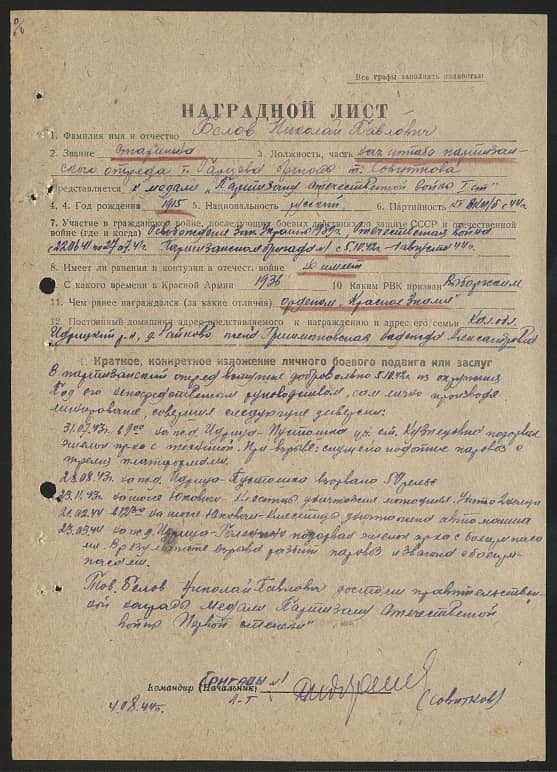 Все графы заполнять полностью
НАГРАДНОЙ ЛИСТ
1. Фамилия имя и отчество Белов Николай Павлович
2. Звание старшина 3. Должность, часть нач. штаба партизан-
ского отряда
представляется к медали „Партизану отечественной войны I ст"
4. Год рождения 1915 5. Национальность русский 6. Партийность
7. Участие в гражданской войне, последующих боевых действиях по защите СССР и отечественной
войне (где и когда) Отечественная война
с 22.06.41 по 27.07.41 Партизанская бригада №1 с 5.10.42 — 1 августа 44 г.
8. Имеет ли ранения и контузии в отечест. войне не имеет
9. С какого времени в Красной Армии 1936 10 Каким РВК призван
11. Чем ранее награждался (за какие отличия) орденом „Красное Знамя"
12. Постоянный домашний адрес представляемого к награждению и адрес его семьи Кал. обл.
Идрицкий р-н, д. жена Надежда Александровна
1. Краткое, конкретное изложение личного боевого подвига или заслуг
В партизанский отряд вступил добровольно 5.10.42 г. из окружения
Под его непосредственным руководством, сам лично производя
минирование, совершил следующие диверсии:
31.07.43 г. в на ж.д. Идрица-Пустошка ст. Кузнецовка подорван
эшелон пр-ка с техникой. При взрыве: спущено под откос паровоз с
тремя платформами.
28.08.43 г. на ж.д. Идрица-Пустошка взорвано 50 рельс
23.11.43 г. на шоссе Юховичи-Клястицы уничтожен мотоцикл
на шоссе Юховичи-Клястицы уничтожена автомашина
23.03.44 на ж.д. Идрица- подорван эшелон пр-ка с боеприпаса-
ми. В результате взрыва разбит паровоз и вагона с боепри-
пасами.
Тов. Белов Николай Павлович достоин правительствен-
ной награды медали Партизану Отечественной
войны Первой степени"
Командир (Начальник) бригады №1
л-т
4.08.44 г.